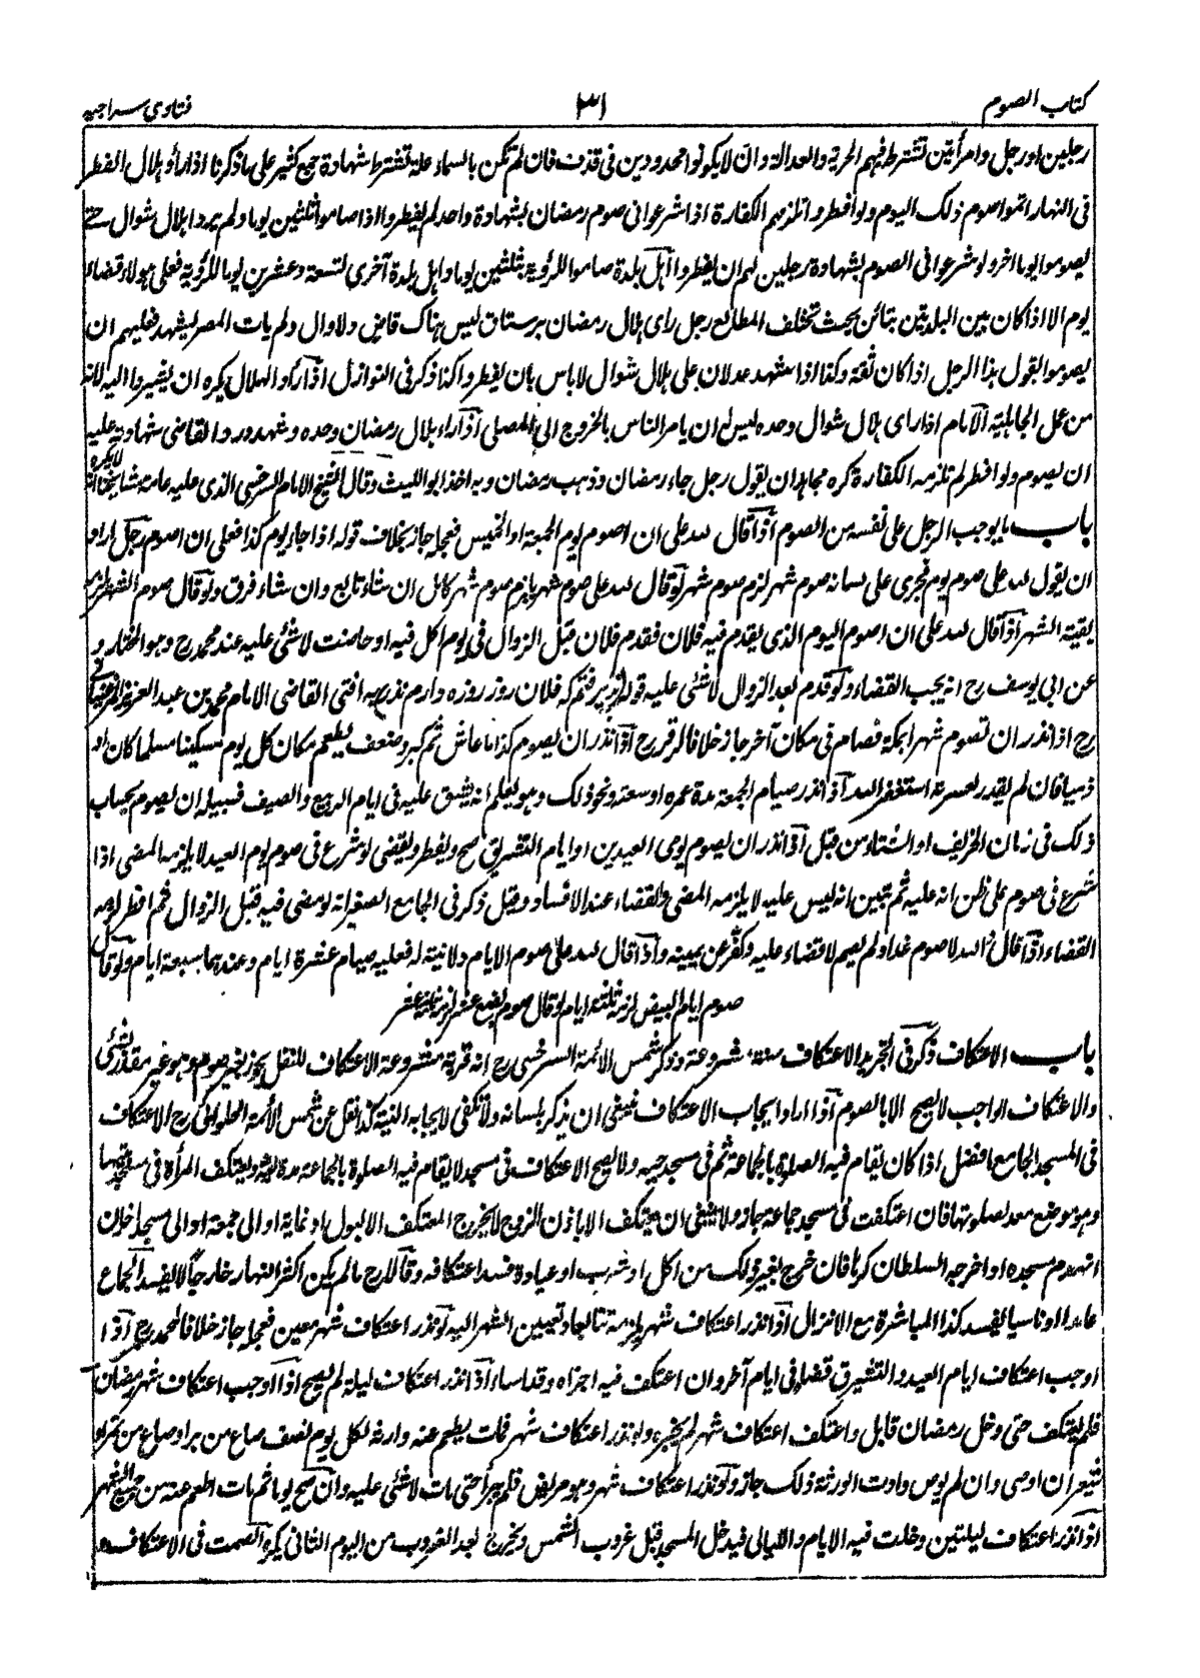 كتاب الصوم ٣١ فتاوى سراجيه
رجلين او رجل وامرأتين تشترط فيهم الحرية والعدالة وان لا يكونوا محدودين في قذف فان لم تكن بالسماء علة تشترط شهادة جمع كثير على ما ذكرنا اذا رأوا هلال الفطر
في النهار اتموا صوم ذلك اليوم ولو افطروا تلزمهم الكفارة اذا شرعوا في صوم رمضان بشهادة واحد لم يفطروا اذا صاموا ثلثين يوما ولم يروا هلال شوال حتى
يصوموا يوما اخر ولو شرعوا في الصوم بشهادة رجلين لهم ان يفطروا اهل بلدة صاموا للرؤية ثلثين يوما واهل بلدة أخرى لتسعة وعشرين يوما للرؤية فعلى هولاء قضاء
يوم الا اذا كان بين البلدتين تبائن بحيث تختلف المطالع رجل راى هلال رمضان برستاق ليس هناك قاض ولا وال ولم يات المصر ليشهد فعليهم ان
يصوموا بقول هذا الرجل اذا كان ثقة وكذا اذا شهد عدلان على هلال شوال لا باس بان يفطروا كذا ذكر في النوازل اذا رأوا الهلال يكره ان يشيروا اليه لانه
من عمل الجاهلية الامام اذا راى هلال شوال وحده ليس له ان يامر الناس بالخروج الى المصلى اذا راء هلال رمضان وحده وشهد ورد القاضي شهادته عليه
ان يصوم ولو افطر لم تلزمه الكفارة كره مجاهد ان يقول رجل جاء رمضان وذهب رمضان وبه اخذ ابو الليث وقال الشيخ الامام السرخسي الذي عليه عامة مشايخنا انه لا يكره
باب ما يوجب الرجل على نفسه من الصوم اذا قال لله على ان اصوم يوم الجمعة او الخميس فعجله جاز بخلاف قوله اذا جاء يوم كذا فعلى ان اصوم رجل اراد
ان يقول لله على صوم يوم فجرى على لسانه صوم شهر لزمه صوم شهر لو قال لله على صوم شهر يلزم صوم شهر كامل ان شاء تابع وان شاء فرق ولو قال صوم الشهر لزمه
بقية الشهر اذا قال لله على ان اصوم اليوم الذي يقدم فيه فلان فقدم فلان قبل الزوال في يوم اكل فيه او حاضت لا شئ عليه عند محمد رح وهو المختار و
عن ابي يوسف رح انه يجب القضاء ولو قدم بعد الزوال لا شئ عليه قوله فلان روز روزه دارم نذر به افتى القاضي الامام محمد بن عبد العزيز
رح اذا نذر ان تصوم شهرا بمكة فصام في مكان آخر جاز خلافا لزفر رح اذا نذر ان يصوم كذا ما عاش ثم كبر وضعف يطعم مكان كل يوم مسكينا مسلما كان او
ذميا فان لم يقدر لعسرته استغفر الله اذا نذر صيام الجمعة مدة عمره او سعة ونحو ذلك وهو يعلم انه يشق عليه في ايام الربيع والصيف فسبيله ان يصوم بحساب
ذلك في زمان الخريف او الشتاء من قبل اذا نذر ان يصوم يومي العيدين او ايام التشريق صح ويفطر ويقضي لو شرع في صوم يوم العيد لا يلزمه المضى اذا
شرع في صوم على ظن انه عليه ثم تبين انه ليس عليه لا يلزمه المضى والقضاء عند الافساد وقيل ذكر في الجامع الصغير انه لو مضى فيه قبل الزوال ثم افطر لزمه
القضاء اذا قال لله لاصوم غدا ولم يصم لا قضاء عليه وكفر عن يمينه واذا قال لله على صوم الايام ولا نية له فعليه صيام عشرة ايام وعندهما سبعة ايام ولو قال
صوم ايام البيض لزمه ثلثة ايام لو قال صوم بضع عشر لزمه ثلثة عشر
باب الاعتكاف ذكر في التجريد الاعتكاف سنة مشروعة وذكر شمس الائمة السرخسي رح انه قربة مشروعة الاعتكاف للنفل يجوز بغير صوم وهو غير مقدر بشئ
والاعتكاف الواجب لا يصح الا بالصوم اذا اراد ايجاب الاعتكاف ينبغي ان يذكر بلسانه ولا تكفى لايجابه النية كذا نقل عن شمس الائمة الحلوائي رح الاعتكاف
في المسجد الجامع افضل اذا كان يقام فيه الصلوة بالجماعة ثم في مسجد حيه ولا يصح الاعتكاف في مسجد لا يقام فيه الصلوة بالجماعة وتعتكف المرأة في مسجد بيتها
وهو موضع معد لصلوتها فان اعتكفت في مسجد جماعة جاز ولا ينبغى ان تعتكف الا باذن الزوج لا يخرج المعتكف الا لبول او غائط او الى جمعة او الى مسجد آخر ان
انهدم مسجده او اخرجه السلطان كرها فان خرج لغير ذلك من اكل او شرب او عيادة فسد اعتكافه وقالا رح ما لم يكن اكثر النهار خارجا لا يفسد الجماع
عامدا او ناسيا يفسد كذا المباشرة مع الانزال اذا نذر اعتكاف شهر يلزمه متتابعا وتعيين الشهر اليه لو نذر اعتكاف شهر معين فعجله جاز خلافا لمحمد رح اذا
اوجب اعتكاف ايام العيد والتشريق قضى في ايام آخر وان اعتكف فيه اجزاه وقد اساء اذا نذر اعتكاف ليلة لم يصح اذا اوجب اعتكاف شهر رمضان
فلم يعتكف حتى دخل رمضان قابل واعتكف اعتكاف شهر لم يجزه ولو نذر اعتكاف شهر فمات يطعم عنه وارثه لكل يوم نصف صاع من بر او صاع من تمر او
شعير ان اوصى وان لم يوص وادت الورثة ذلك جاز ولو نذر اعتكاف شهر وهو مريض فلم يبرأ حتى مات لا شئ عليه وان صح يوما ثم مات اطعم عنه من جميع الشهر
اذا نذر اعتكاف ليلتين دخلت فيه الايام والليالي فيدخل المسجد قبل غروب الشمس ويخرج بعد الغروب من اليوم الثاني يكره الصمت في الاعتكاف